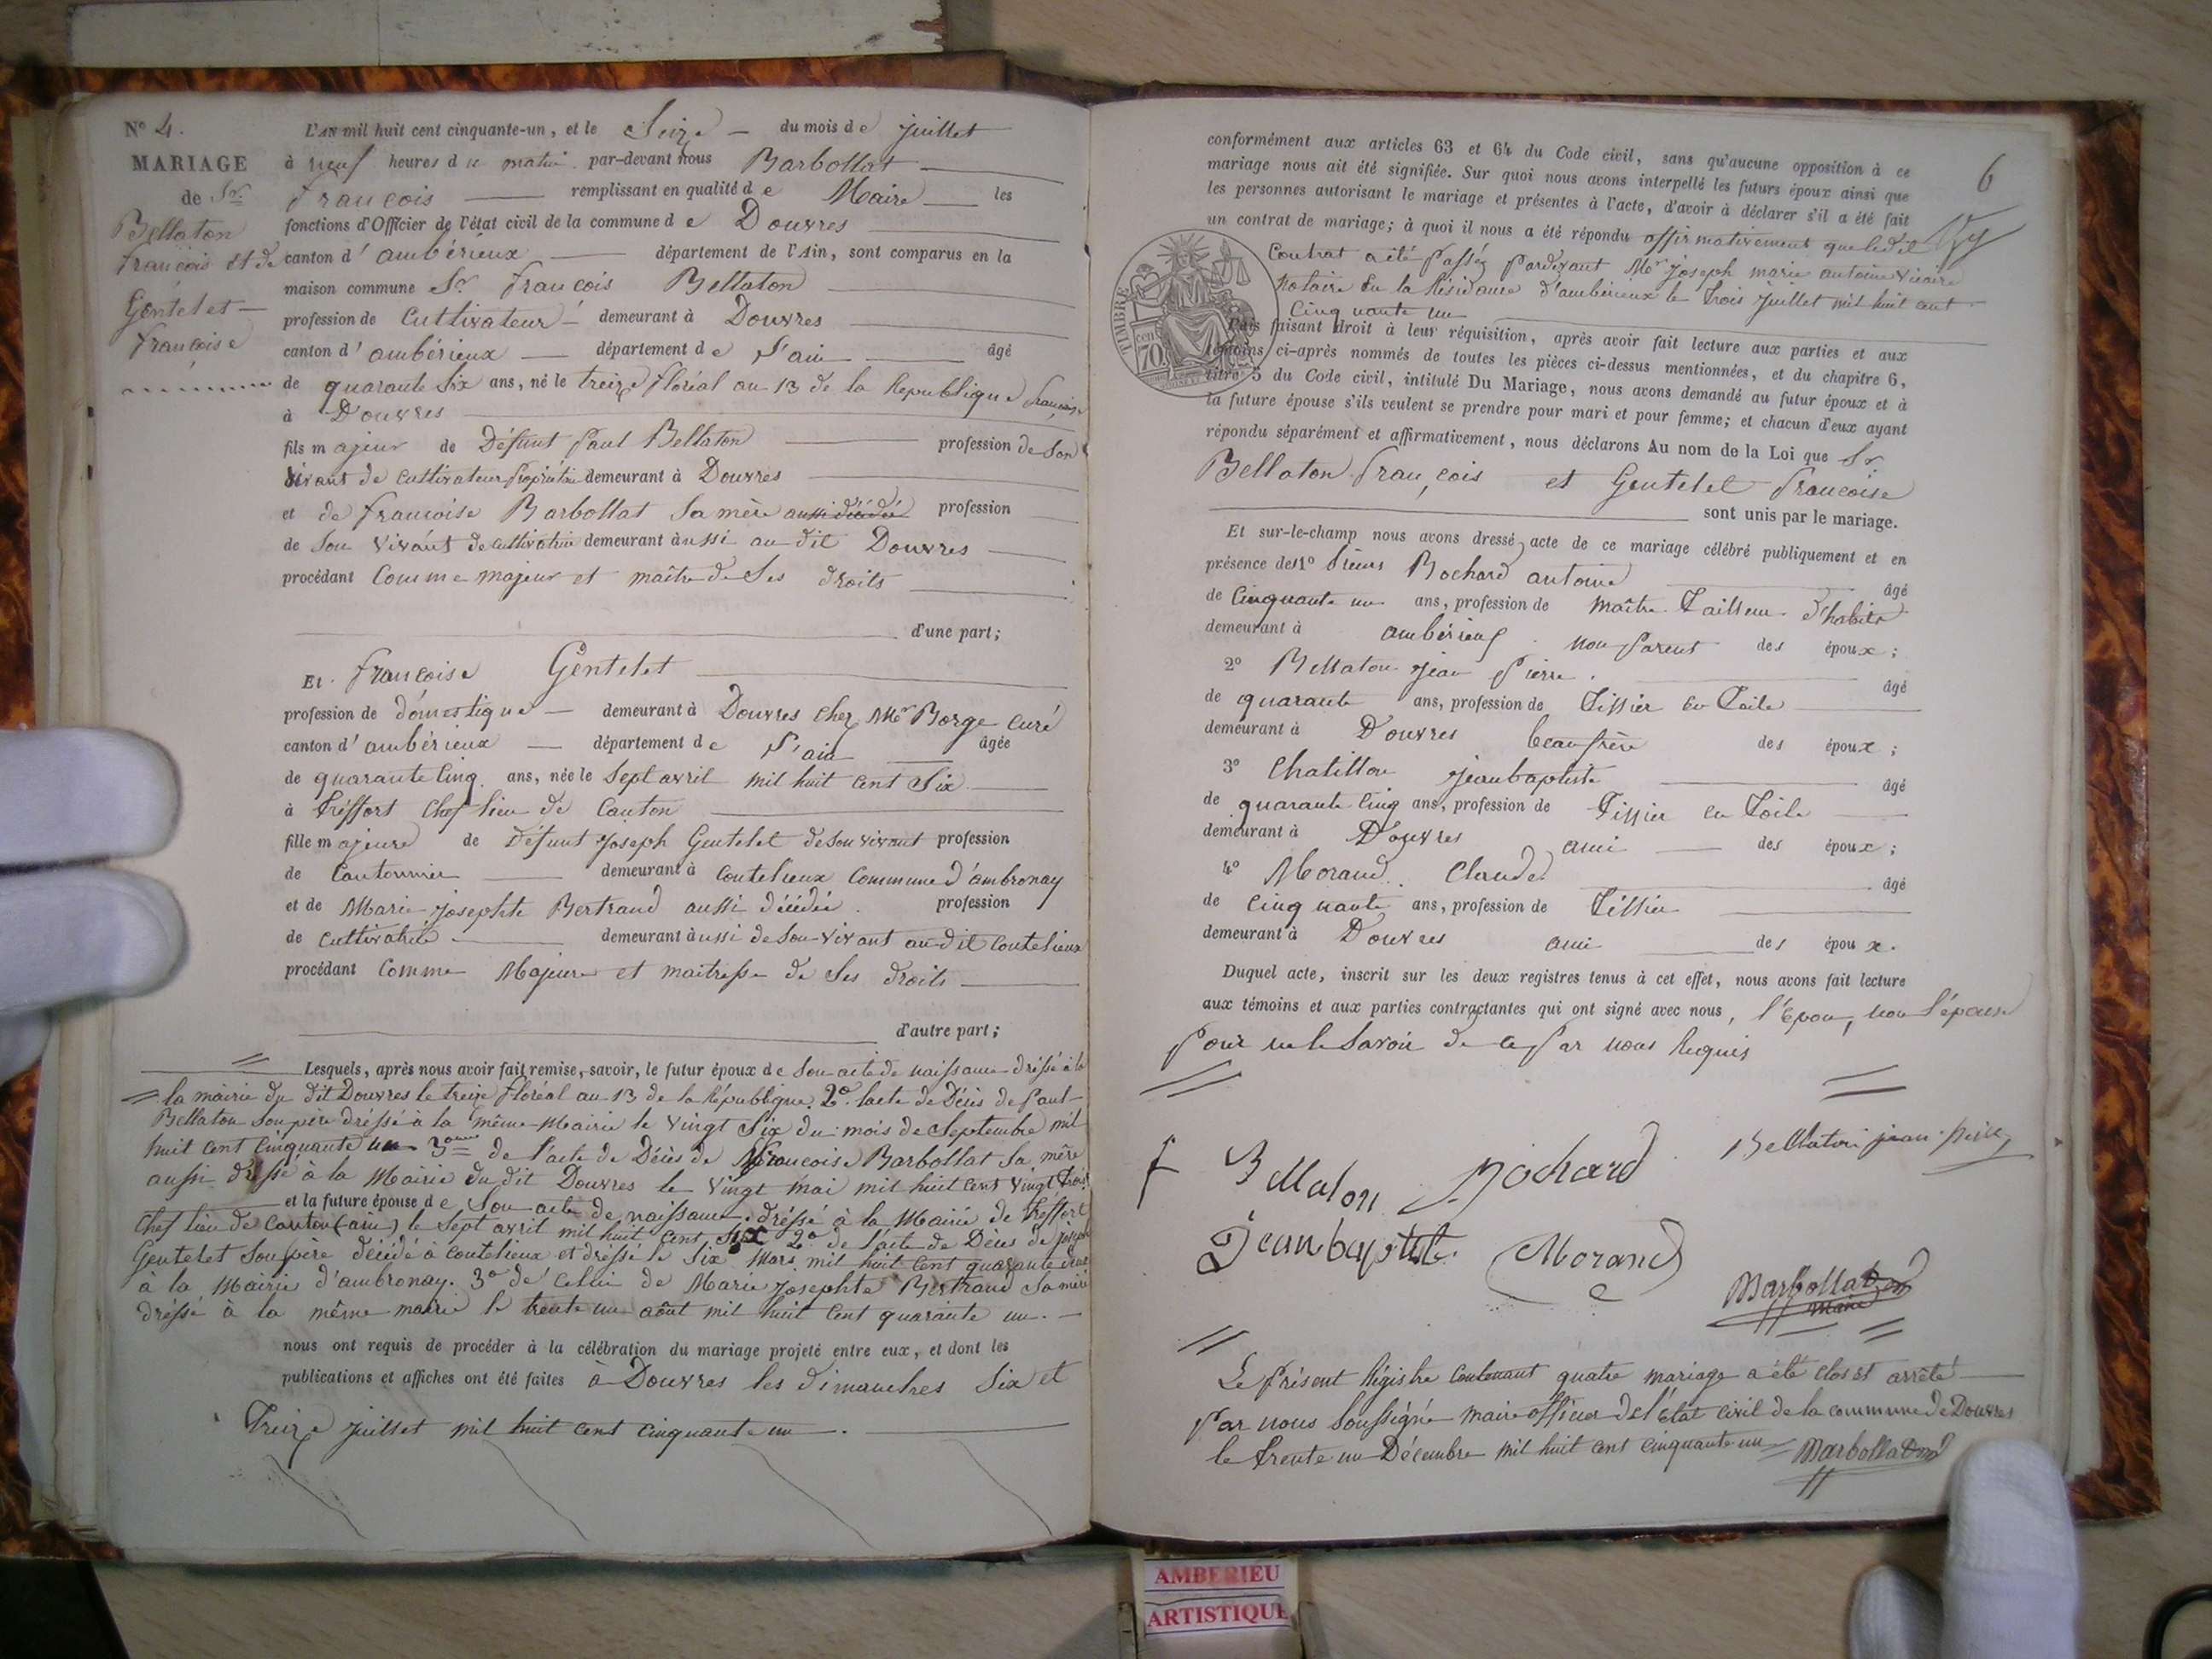 N° 4.
MARIAGE
de Sr.
Bellaton
françois et de
Gentelet
françoise
L'an mil huit cent cinquante-un, et le Seize du mois de juillet
à neuf heures du matin par-devant nous Barbollat
françois remplissant en qualité de Maire les
fonctions d'Officier de l'état civil de la commune de Douvres
canton d'ambérieux département de l'Ain, sont comparus en la
maison commune Sr françois Bellaton
profession de Cultivateur demeurant à Douvres
canton d'ambérieux département de l'ain âgé
de quarante Six ans, né le treize floréal an 13 de la Republique française
à Douvres
fils majeur de Défunt Paul Bellaton profession de Son
vivant de cultivateur propriétaire demeurant à Douvres
et de françoise Barbollat Sa mère aussi décédée profession
de Son vivant de cultivatrice demeurant aussi au dit Douvres
procédant Comme majeur et maître de Ses droits
d'une part;
Et françoise Gentelet
profession de domestique demeurant à Douvres chez Mr Borge curé
canton d'ambérieux département de l'ain âgée
de quarante Cinq ans, née le Sept avril mil huit cent Six
à Tréffort Chef lieu de Canton
fille majeure de Défunt Joseph Gentelet de Son vivant profession
de Cantonnier demeurant à Coutelieux Commune d'ambronay
et de Marie Josephte Bertrand aussi décédée profession
de cultivatrice demeurant aussi de Son vivant au dit Coutelieux
procédant Comme Majeure et maitresse de Ses droits
d'autre part;
Lesquels, après nous avoir fait remise, savoir, le futur époux de Son acte de naissance dréssé à la
la mairie du dit Douvres le treize floréal an 13 de la République. 2° l'acte de Décès de Paul
Bellaton Son père dréssé à la même Mairie le vingt Six du mois de Septembre mil
huit cent cinquante un 3° de l'acte de Décès de françoise Barbollat Sa mère
aussi dréssé à la Mairie du dit Douvres le vingt mai mil huit cent vingt trois
et la future épouse de Son acte de naissance dréssé à la Mairie de Tréffort
Chef lieu de Canton (ain) le Sept avril mil huit cent Six 2° de l'acte de Décès de joseph
Gentelet Son père décédé à coutelieux et dréssé le Six Mars mil huit cent quarante deux
à la Mairie d'ambronay. 3° de Celui de Marie Josephte Bertrand Sa mère
dréssé à la même mairie le trente un août mil huit Cent quarante un.
nous ont requis de procéder à la célébration du mariage projeté entre eux, et dont les
publications et affiches ont été faites à Douvres les dimanches Six et
Treize juillet mil huit cent cinquante un.
6
conformément aux articles 63 et 64 du Code civil, sans qu'aucune opposition à ce
mariage nous ait été signifiée. Sur quoi nous avons interpellé les futurs époux ainsi que
les personnes autorisant le mariage et présentes à l'acte, d'avoir à déclarer s'il a été fait
un contrat de mariage; à quoi il nous a été répondu affirmativement que le dit
Contrat a été passé pardevant Mr joseph marie antoine
notaire de la Résidence d'ambérieux le trois juillet mil huit cent
Cinquante un
TIMBRE
70
Puis faisant droit à leur réquisition, après avoir fait lecture aux parties et aux
témoins ci-après nommés de toutes les pièces ci-dessus mentionnées, et du chapitre 6,
titre 5 du Code civil, intitulé Du Mariage, nous avons demandé au futur époux et à
la future épouse s'ils veulent se prendre pour mari et pour femme; et chacun d'eux ayant
répondu séparément et affirmativement, nous déclarons Au nom de la Loi que Sr.
Bellaton françois et Gentelet françoise
sont unis par le mariage.
Et sur-le-champ nous avons dressé acte de ce mariage célébré publiquement et en
présence des 1° Sieurs Bochard antoine âgé
de Cinquante un ans, profession de maître Tailleur d'habits
demeurant à ambérieux non parent des époux;
2° Bellaton jean Pierre. âgé
de quarante ans, profession de Tissier en Toile
demeurant à Douvres beau frère des époux;
3° Chatillon jeanbaptiste âgé
de quarante Cinq ans, profession de Tissier en Toile
demeurant à Douvres ami des époux;
4° Morand Claude âgé
de cinquante ans, profession de Tissier
demeurant à Douvres ami des époux.
Duquel acte, inscrit sur les deux registres tenus à cet effet, nous avons fait lecture
aux témoins et aux parties contractantes qui ont signé avec nous, l'Epoux, non l'épouse
pour ne le Savoir de ce par nous Requis
f Bellaton Bochard Bellaton jean pierre
Jeanbaptiste Morand
C
Barbollat
Maire
Le présent Régistre Contenant quatre mariage a été clos et arrêté
par nous Soussigné maire officier de l'Etat civil de la commune de Douvres
le trente un Décembre mil huit cent cinquante un Barbollat
AMBERIEU
ARTISTIQUE